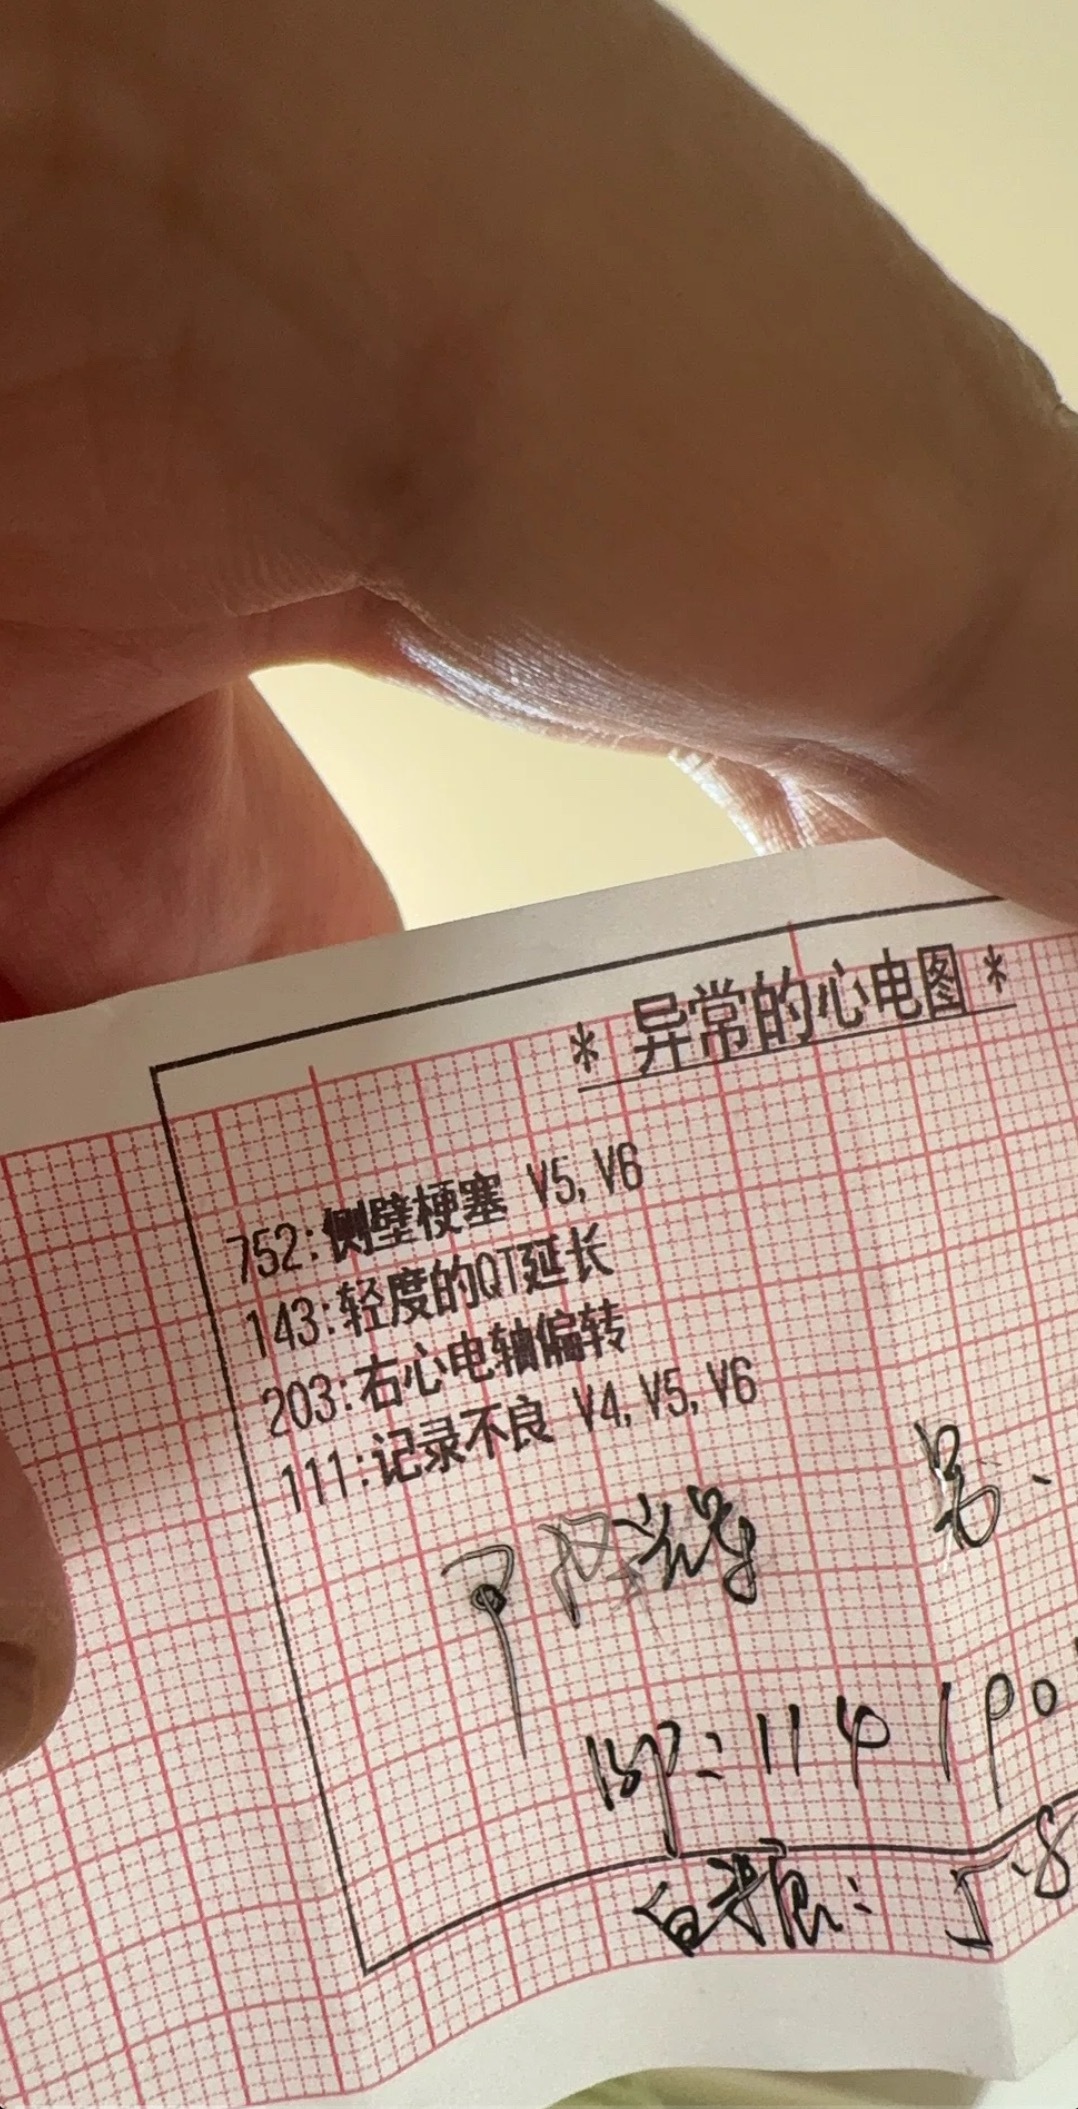 * 异常的心电图 *
752:侧壁梗塞 V5, V6
143:轻度的QT延长
203:右心电轴偏转
111:记录不良 V4, V5, V6
男.
BP: 114 /
5.8